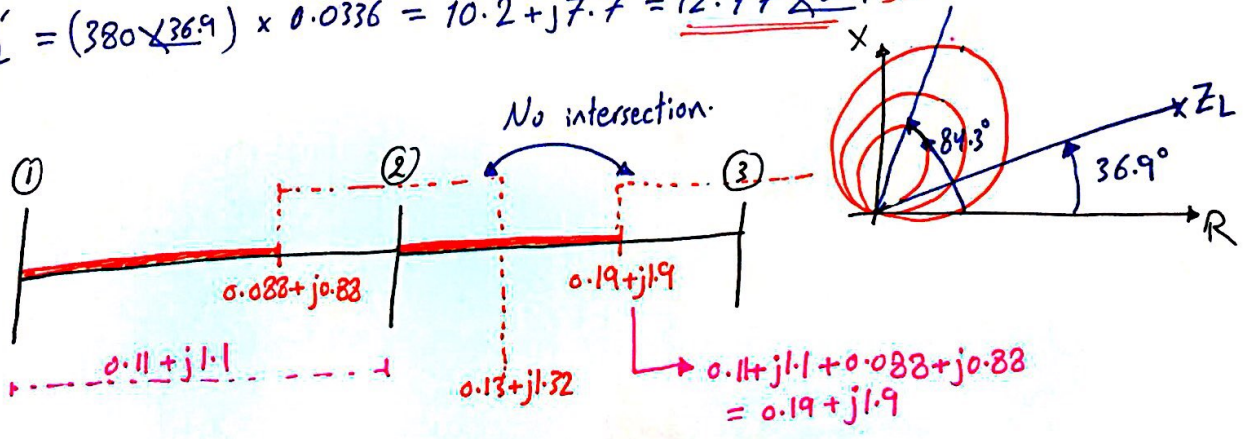 = (380∠36.9) × 0.0336 = 10.2 + j7.7 =
No intersection.
X
ZL
84.3°
36.9°
R
① ② ③
0.088 + j0.88
0.19 + j1.9
0.11 + j1.1
0.13 + j1.32
0.11 + j1.1 + 0.088 + j0.88
= 0.19 + j1.9